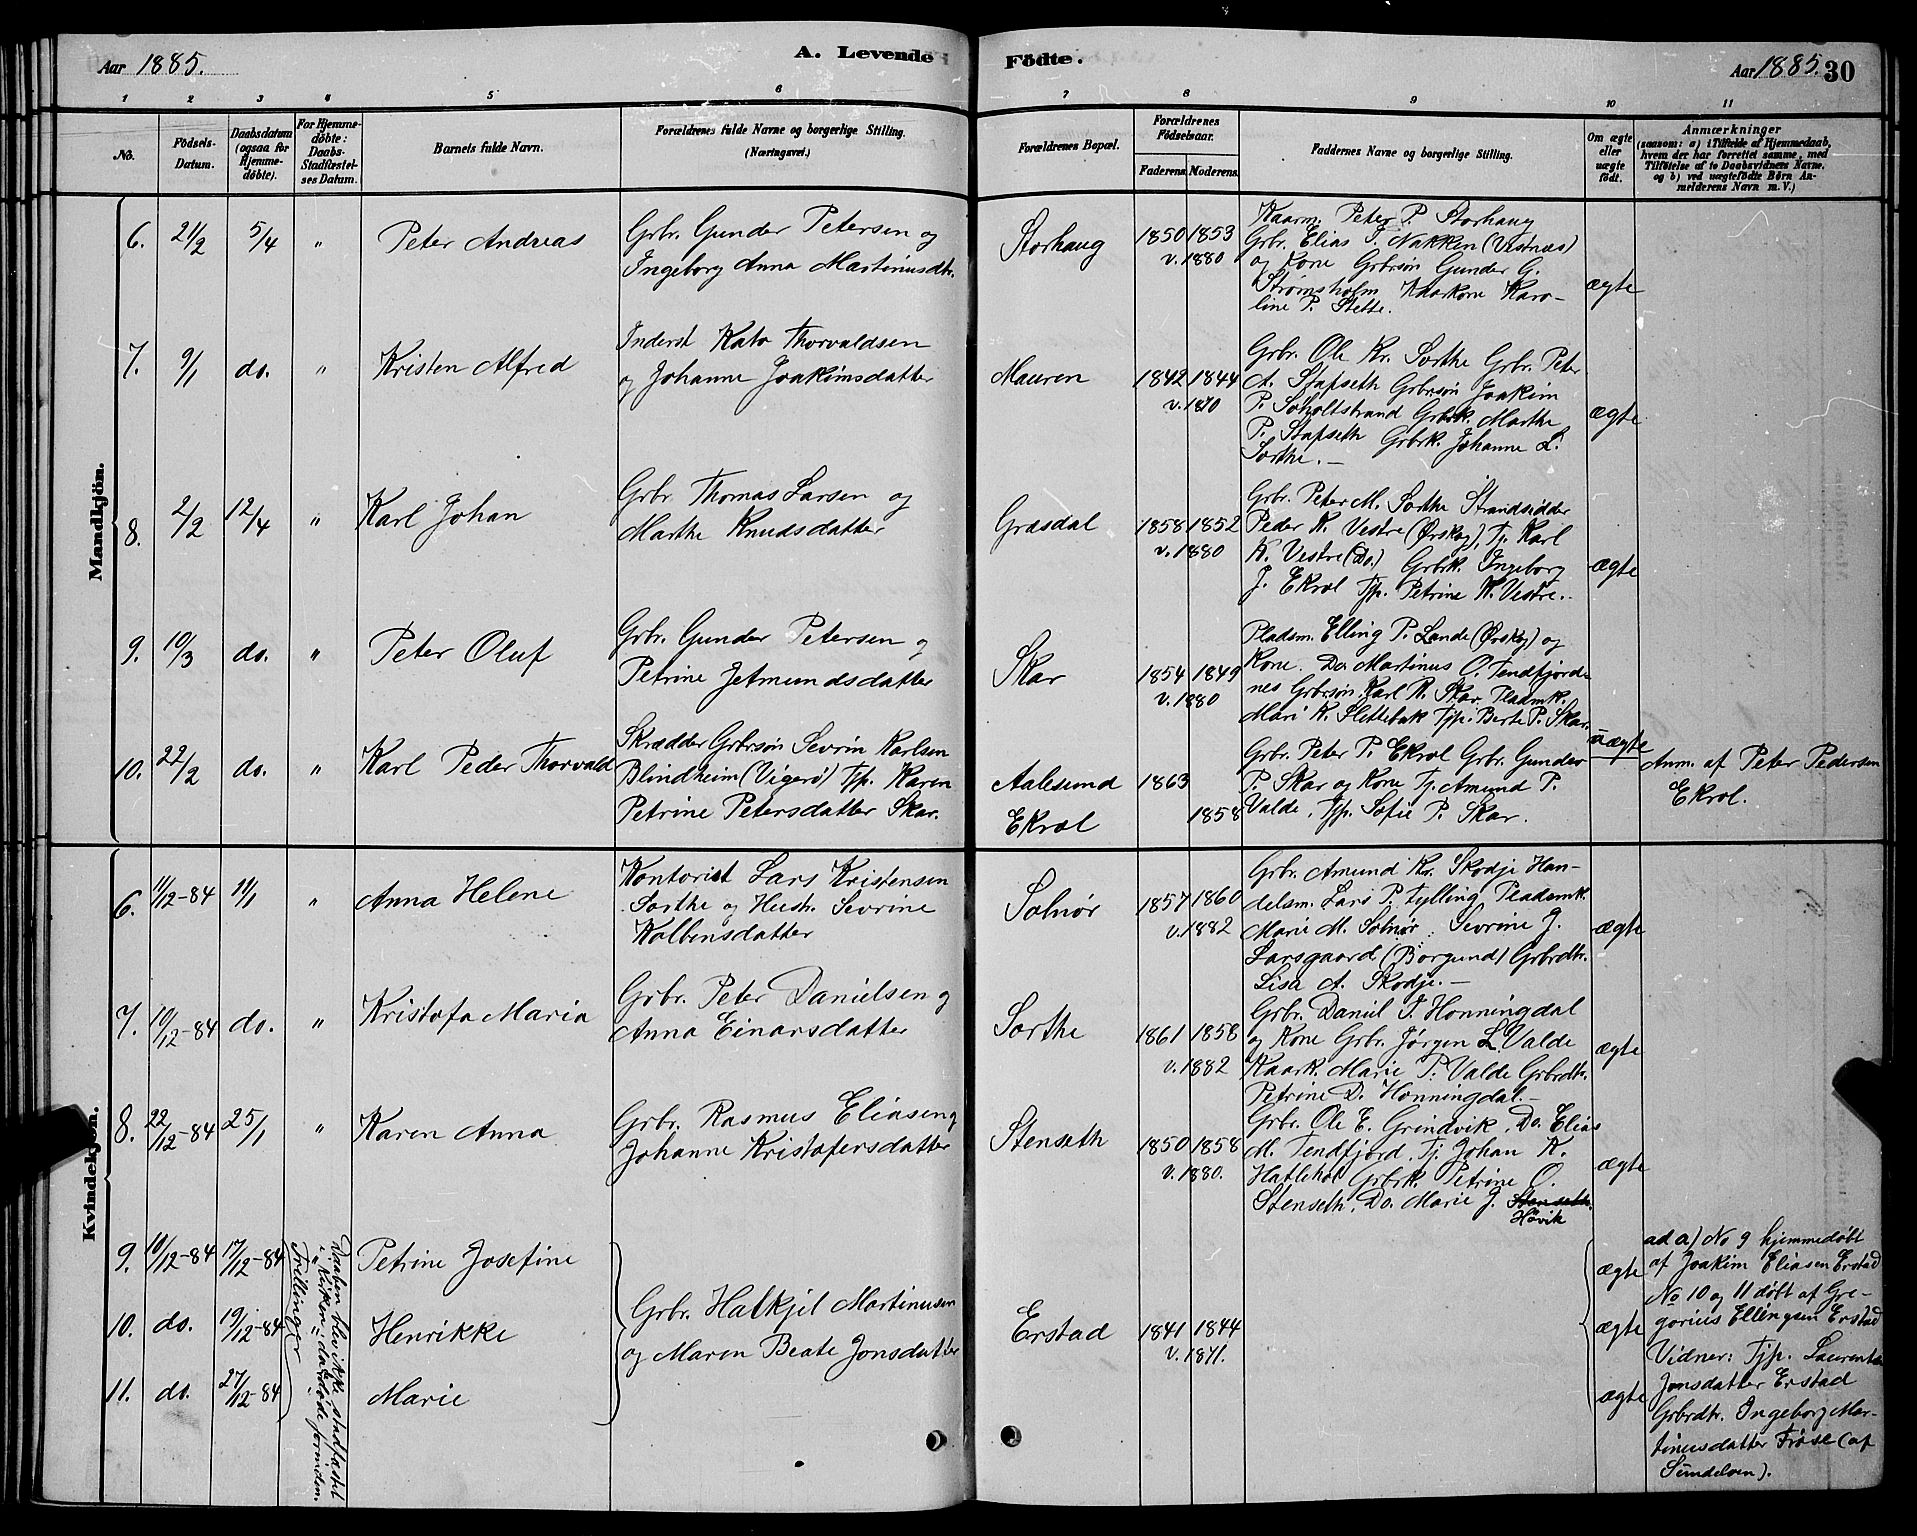 Aar 1885.
A. Levende Födte.
Aar 1885. 30
1 2 3 4 5 6 7 8 9 10 11
No.
Födsels-Datum.
Daabsdatum (ogsaa for Hjemme-döbte).
For Hjemme-döbte: Daabs-Stadfæstel-ses Datum.
Barnets fulde Navn.
Forældrenes fulde Navne og borgerlige Stilling. (Næringsvei.)
Forældrenes Bopæl.
Forældrenes Födselsaar.
Faderens. Moderens.
Faddernes Navne og borgerlige Stilling.
Om ægte eller uægte födt.
Anmærkninger
(saasom: a) i Tilfælde af Hjemmedaab,
hvem der har forrettet samme, med
Tilföielse af to Daabsvidners Navne.
og b) ved uægtefödte Börn An-
melderens Navn m. V.)
Mandkjön.
6. 21/2 5/4 " Peter Andreas
Grbr. Gunder Petersen og
Ingeborg Anna Martinusdtr.
Storhaug 1850 1853
v. 1880
Kaarm. Peter P. Storhaug
Grbr. Elias P. Nakken (Vestnæs)
og Kone Grbrsøn Gunder G.
Strømsholm Kaarkone Karo-
line P. Stette.
ægte
7. 9/1 do. " Kristen Alfred
Inderst Kato Thorvaldsen
og Johanne Joakimsdatter
Mauren 1842 1844
v. 1870
Grbr. Ole Kr. Sorthe Grbr. Peter
A. Stafseth Grbrsøn Joakim
P. Søholtstrand Grbrk. Marthe
P. Stafseth Grbrk. Johanne L.
Sorthe. —
ægte
8. 2/2 12/4 " Karl Johan
Grbr. Thomas Larsen og
Marthe Knudsdatter
Grasdal 1858 1852
v. 1880
Grbr. Peter M. Sorthe Strandsidder
Peder K. Vestre (Ørskog), Tj. Karl
K. Vestre (Do.) Grbrk. Ingeborg
J. Ekrol Tjp. Petrine K. Vestre..
ægte
9. 10/3 do. " Peter Oluf
Grbr. Gunder Petersen og
Petrine Jetmundsdatter
Skar 1854 1849
v. 1880
Pladsm. Elling P. Lande (Ørskog) og
Kone. Do Martinus O. Tendfjord-
nes Grbrsøn. Karl K. Skar. Pladmk.
Mari K. Slettebak Tjp. Berte P. Skar.
10. 22/2 do. " Karl Peder Thorvald
Skrædder Grbrsøn Sevrin Karlsen
Blindheim (Vigerø) Tjp. Karen
Petrine Petersdatter Skar.
Aalesund 1863
Ekrol 1858
Grbr. Peter P. Ekrol Grbr. Gunder
P. Skar og Kone Tj. Amund P.
Valde, Tjp. Sofie P. Skar.
uægte
Anm. af Peter Pedersen
Ekrol.
Kvindekjön.
6. 11/12-84 11/1 " Anna Helene
Kontorist Lars Kristensen
Sorthe og Hustr. Sevrine
Kolbensdatter
Solnør 1857 1860
v. 1882
Grbr. Amund Kr. Skodje Han-
delsm. Lars P. Fylling, Pladsmk.
Marie M. Solnør, Sevrine J.
Larsgaard (Borgund) Grbrdtr.
Lisa A. Skodje. —
ægte
7. 10/12-84 do. " Kristofa Maria
Grbr. Peter Danielsen og
Anna Einarsdatter
Sorthe 1861 1858
v. 1882
Grbr. Daniel T. Honningdal
og Kone Grbr. Jørgen L. Valde
Kaark. Marie P. Valde Grbrdtr.
Petrine D. Honningdal. —
ægte
8. 22/12-84 25/1 " Karen Anna
Grbr. Rasmus Eliasen og
Johanne Kristofersdatter
Stenseth 1850 1858
v. 1880.
Grbr. Ole E. Grindvik. Do. Elias
M. Tendfjord, Tj. Johan K.
Hatlehol Grbrk. Petrine O.
Stenseth. Do. Marie J. Stenseth.
Høvik
ægte
9. 10/12-84 17/12-84 Petrine Josefine
10. do. 19/12-84 Henrikke
11. do. 27/12-84 Marie
Trillinger
Daaben blev ikke stadfæstet
i Kirken, da døde forinden.
Grbr. Halkjel Martinusen
og Maren Beate Jonsdatter
Erstad 1841 1844
v. 1871.
ægte
ægte
ægte
ad a) No 9 hjemmedøbt
af Joakim Eliasen Erstad
No 10 og 11 døbt af Gre-
gorius Ellingsen Erstad
Vidner: Tjp. Laurentse
Jonsdatter Erstad
Grbrdtr. Ingeborg Mar-
tinusdatter Frøse (af
Sundelven).